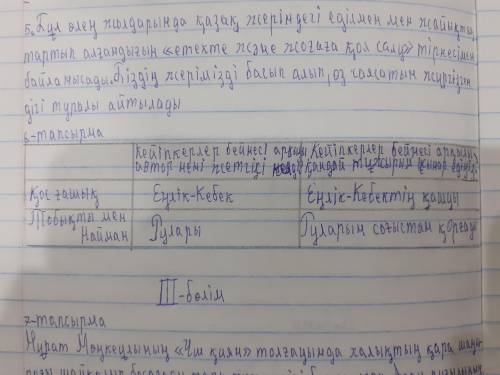 5. Бұл өлең жолдарында қазақ жеріндегі еділмен мен жайықты
тартып алғандығын «етекте және жағаға қол салу» тіркесімен
байланысады. Біздің жерімізді басып алып, өз саясатын жүргізген
дігі туралы айтылады
6-тапсырма
Кейіпкерлер бейнесі арқылы автор нені жеткізді Кейіпкерлер бейнесі арқылы қандай тұжырым
Қос ғашық Еңлік-Кебек Еңлік-Кебектің қашуы
Тобықты мен Найман Рулары Руларын соғыстан қорғауы
III-бөлім
7-тапсырма
Мұрат Мөңкеұлының «Үш қиян» толғауында халықтың қара шаңы-